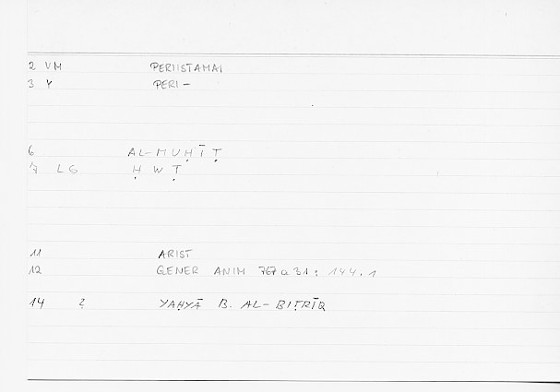 2 VM PERIISTAMAI
3 Y PERI-
6 AL-MUḤĪṬ
7 LG Ḥ W Ṭ
11 ARIST
12 GENER ANIM 767 a 31 : 144.1
14 YAḤYĀ B. AL-BIṬRĪQ